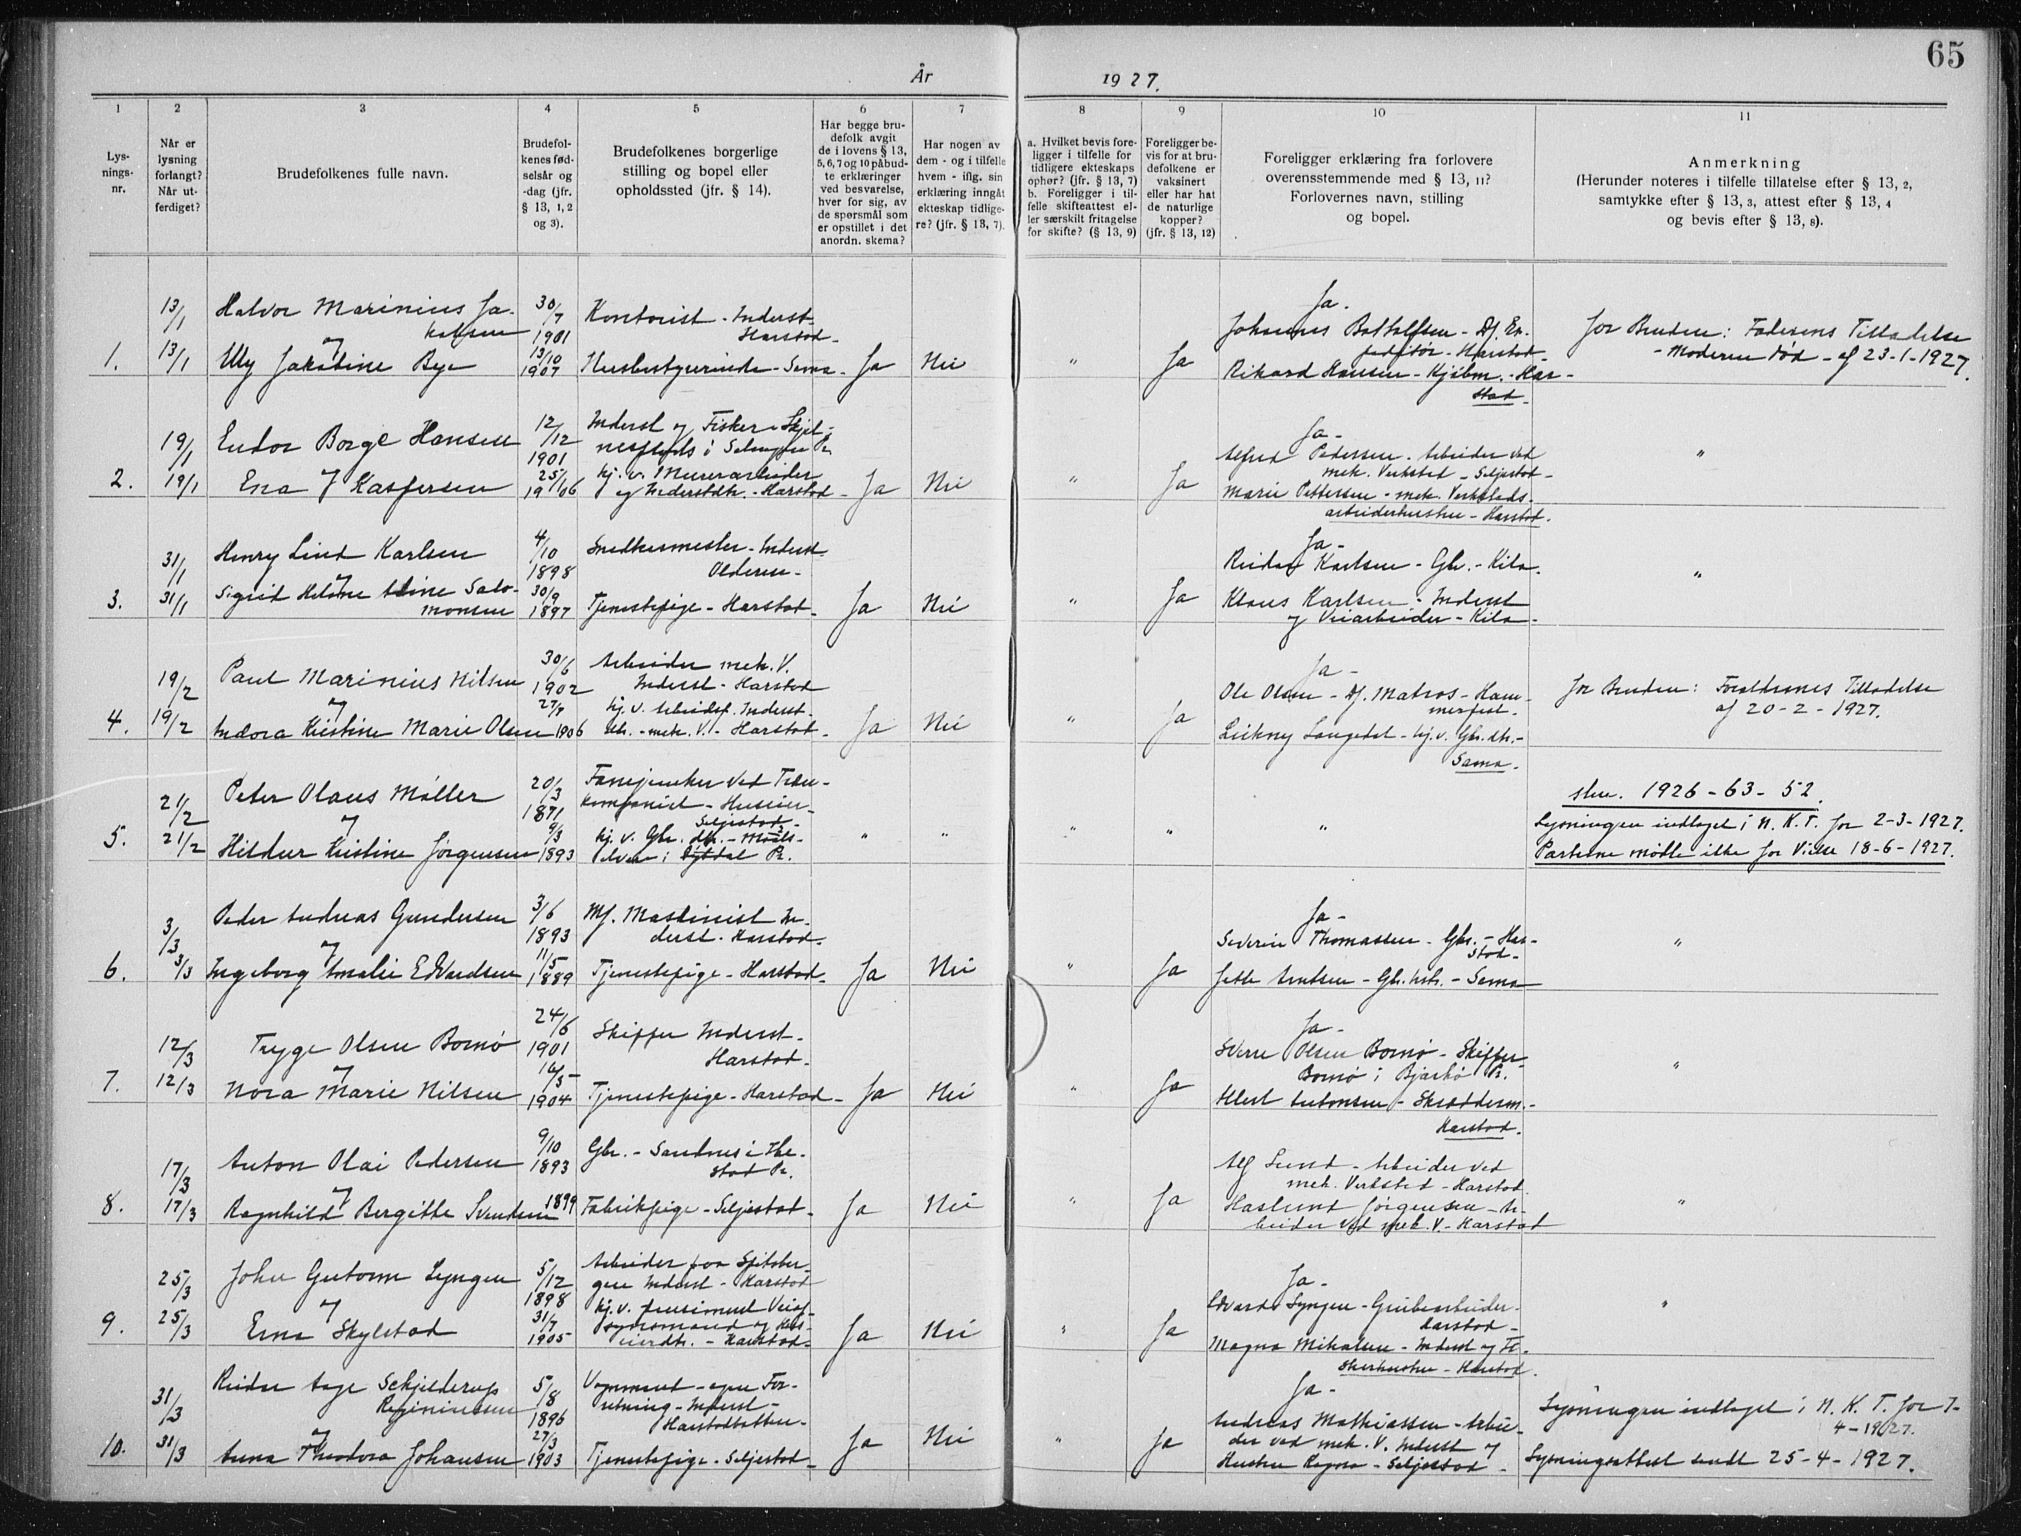 65
År 1927.
1 2 3 4 5 6 7 8 9 10 11
Lysningsnr.
Når er lysning forlangt? Når utferdiget?
Brudefolkenes fulle navn.
Brudefolkenes fødselsår og -dag (jfr. § 13, 1, 2 og 3).
Brudefolkenes borgerlige stilling og bopel eller opholdssted (jfr. § 14).
Har begge brudefolk avgit de i lovens § 13, 5, 6, 7 og 10 påbudte erklæringer ved besvarelse, hver for sig, av de spørsmål som er opstillet i det anordn. skema?
Har nogen av dem - og i tilfelle hvem - iflg. sin erklæring inngått ekteskap tidligere? (jfr. § 13, 7).
a. Hvilket bevis foreligger i tilfelle for tidligere ekteskaps ophør? (jfr. § 13, 7) b. Foreligger i tilfelle skifteattest eller særskilt fritagelse for skifte? (§ 13, 9)
Foreligger bevis for at brudefolkene er vaksinert eller har hat de naturlige kopper? (jfr. § 13, 12)
Foreligger erklæring fra forlovere overensstemmende med § 13, 11? Forlovernes navn, stilling og bopel.
Anmerkning (Herunder noteres i tilfelle tillatelse efter § 13, 2, samtykke efter § 13, 3, attest efter § 13, 4 og bevis efter § 13, 8).
13/1 Halvor Marinius Ja- 30/7 1901 Kontorist - Inderst Ja -
kobsen Harstad - Johannes
og Harstad - for Bruden: Faderens Tilladelse
1. 13/1 Elly Jakobine Bye 13/10 1907 Husbestyrerinde - Sama - Ja Nei " Ja Rikard Hansen - Kjøbm. - Har- - Moderen død - af 23-1-1927.
stad -
19/1 Endor Borge Hansen 12/12 1901 Inderst og Fisker - Ja -
Alfred Pedersen - Arbeider ved "
2. 19/1 Erna og Kaspersen 25/1 1906 hj. v. Murerarbeider mek. Verksted - Seljestad -
og Inderstdtr. - Harstad - Ja Nei " Ja Marie Pettersen - mek. Verksteds-
arbeiderhustru - Harstad.
31/1 Henry Lind Karlsen 4/10 1898 Snedkermester - Inderst Ja -
Olderen - Reidar Karlsen - Gbr. - Kila "
og
3. 31/1 Sigrid Helene Aline Salo- 30/9 1897 Tjenestepige - Harstad - Ja Nei " Ja Klaus Karlsen - Inderst
monsen og Veiarbeider - Kila -
19/2 Paul Marinius Nilsen 30/6 1902 Arbeider mek. V. Ja -
Inderst - Harstad Ole Olsen - Df. Matros - Ham- for Bruden: Forældrenes Tilladelse
og 27/ hj. v. Arbeidsf. Inderst - merfest - af 20-2-1927.
4. 19/2 Indora Kristine Marie Olsen 1906 - mek. V. - Harstad - Ja Nei " Ja Langedal - hj. v. Gbr. dtr. -
Sama -
21/2 Peter Olaus Møller 20/3 1871 Fanejunker ved Træn- 1926-63-52.
kompaniet - Huseier -
og Seljestad - Lysningen indtaget i N. K. T. for 2-3-1927.
5. 21/2 Hildur Kristine Jørgensen 9/3 1893 hj. v. Gbr. dtr. - Maals- " " " " " Parterne mødte ikke for Vielse 18-6-1927.
elven i Pr.
3/3 Peder Andreas Gundersen 3/6 1893 Mf. Maskinist In- Ja -
derst - Harstad - Severin Thomassen - Gbr. - Har- "
og stad -
6. 3/3 Ingeborg Amalie Edvardsen 11/5 1889 Tjenestepige - Harstad - Ja Nei " Ja Jette Arntsen - Gbr. - Sama
12/3 Trygve Olsen Bornø 24/6 1901 Skipper Inderst - Ja -
Harstad - Sverre Olsen Bornø - Skipper - "
og Bornø i Bjarkø Pr.
7. 12/3 Nora Marie Nilsen 1904 Tjenestepige - Harstad - Ja Nei " Ja Antonsen - Skræderm. -
Harstad.
17/3 Anton Olai Pedersen 9/10 1893 Gbr. - Sandnes i Ibe- Alf Lund - Arbeider ved
stad Pr. mek. Verksted - Harstad.
og
8. 17/3 Ragnhild Bergitte Svendsen 1899 Fabrikpige - Seljestad - Ja Nei " Ja Haslund Jørgensen - Ar- "
beider ved mek. V. - Harstad
25/3 John Guttorm Lyngen 5/12 1898 Arbeider paa Spitsber- Ja -
gen Inderst - Harstad Edvard Lyngen - Grubearbeider - "
og hj. v. pensioneret Veiop- Harstad -
9. 25/3 Erna Skjelstad 31/7 1905 synsmand og Hus- Ja Nei " Ja Magna Mikalsen - Inderst og Fi-
eierdtr. - Harstad - skerhustru - Harstad.
31/3 Reidar Aage Schjelderup 5/8 1896 Vognmand - egen For- Ja -
Reginiussen retning - Inderst - Andreas Mathiassen - Arbei- Lysningen indtaget i N. K. T. for 7-
og Harstadbotten - der ved mek. V. Inderst og 4-1927.
10. 31/3 Anna Theodora Johansen 27/3 1903 Tjenestepige - Seljestad - Ja Nei " Ja Hustru Ragna - Seljestad - Lysningsattest sendt 25-4-1927.